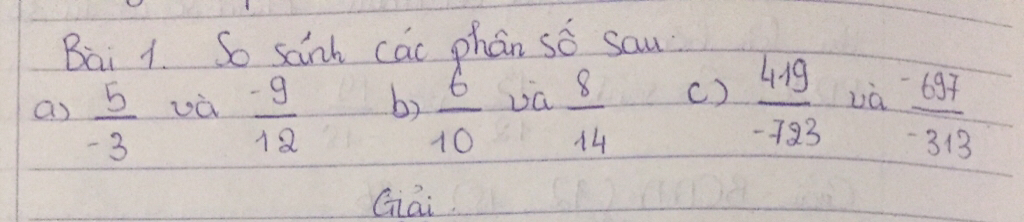 Bài 1. So sánh các phân số sau:
a) 5/-3 và -9/12 b) 6/10 và 8/14 c) 419/-723 và -697/-313
Giải.